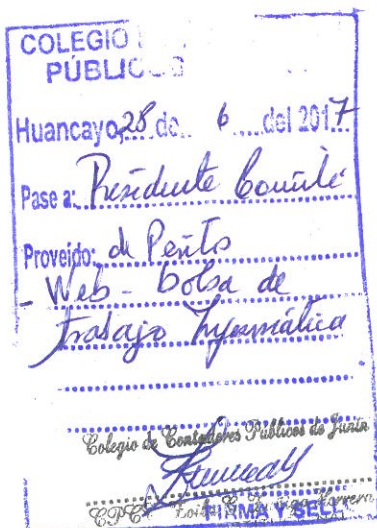 COLEGIO
PÚBLICOS
Huancayo, 28 de 6 del 2017
Pase a: Presidente Comité
Proveído: de Peritos
- Web - Bolsa de
trabajo Informática
Colegio de Contadores Públicos de Junín
FIRMA Y SELLO